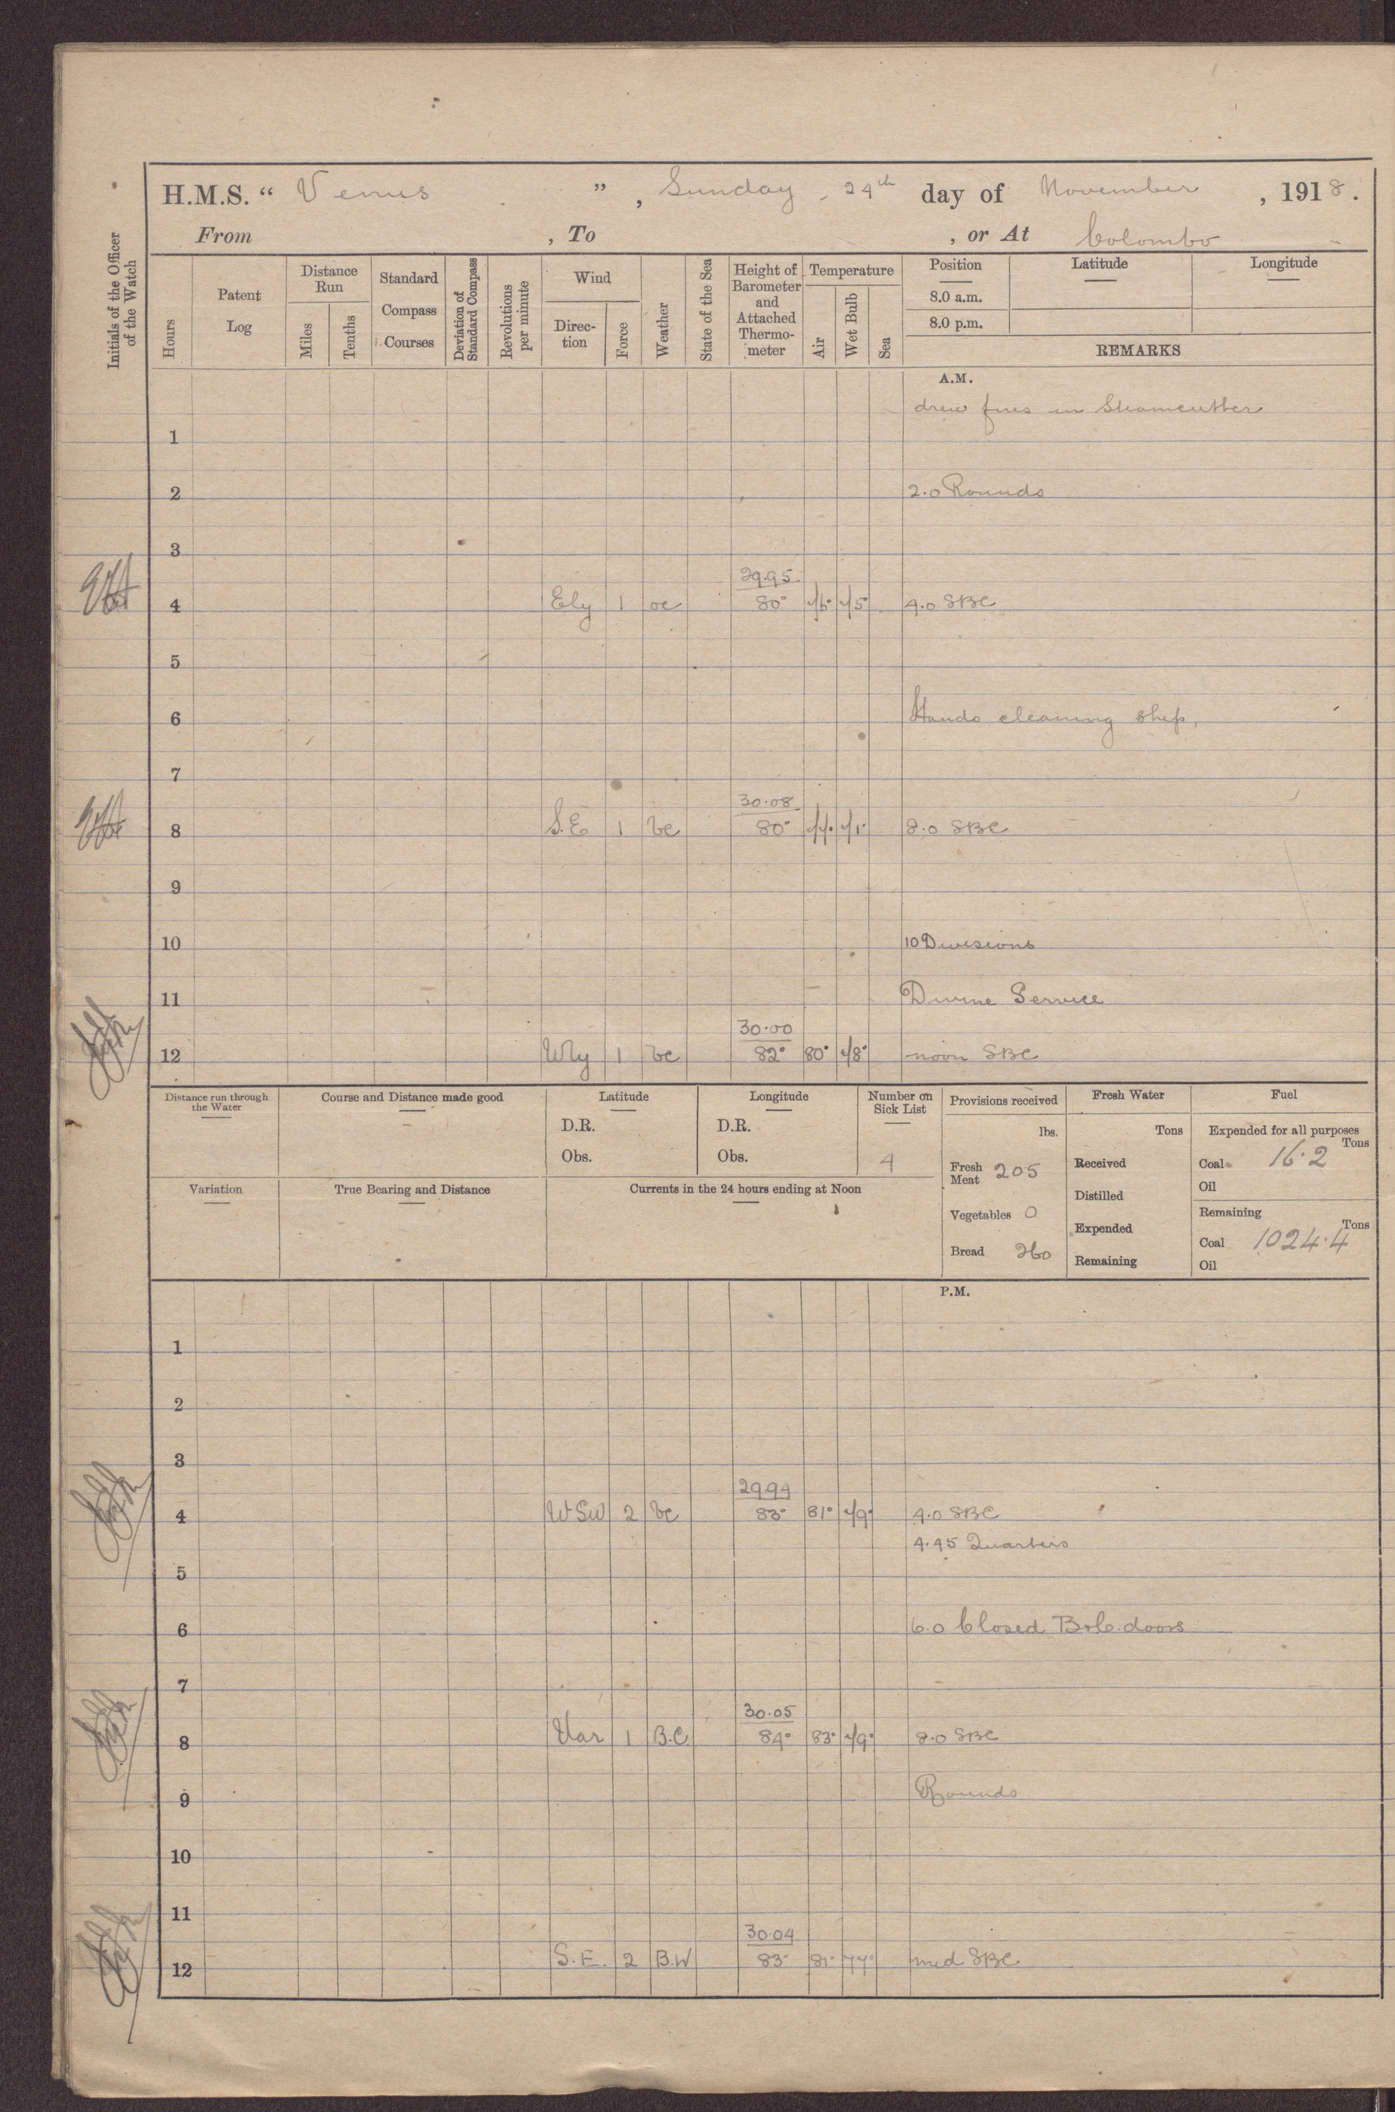 H.M.S. “ Venus ” , Sunday, 24th day of November , 1918.
From , To , or At Colombo
Initials of the Officer of the Watch
Hours
Patent Log
Distance Run
Miles
Tenths
Standard Compass Courses
Deviation of Standard Compass
Revolutions per minute
Wind
Direc-tion
Force
Weather
State of the Sea
Height of Barometer and Attached Thermo-meter
Temperature
Air
Wet Bulb
Sea
Position Latitude Longitude
8.0 a.m.
8.0 p.m.
REMARKS
A.M.
drew fires in Steamcutter
1
2 2.0 Rounds
3
29.95
4 Ely 1 oc 80° 75° 4.0 SBC
5
6 Hands cleaning ship,
7
30.08
8 S.E 1 bc 80° 71° 8.0 SBC
9
10 10 Divisions
11 Divine Service
30.00
12 Wly 1 bc 82° 80° 78° noon SBC
Distance run through the Water
Course and Distance made good
Latitude
D.R.
Obs.
Longitude
D.R.
Obs.
Number on Sick List
4
Provisions received
lbs.
Fresh Meat 205
Vegetables 0
Bread 260
Fresh Water
Tons
Received
Distilled
Expended
Remaining
Fuel
Expended for all purposes
Tons
Coal 16.2
Oil
Remaining
Tons
Coal 1024.4
Oil
Variation
True Bearing and Distance
Currents in the 24 hours ending at Noon
P.M.
1
2
3
29.94
4 WSW 2 bc 83° 81° 79° 4.0 SBC
4.45 Quarters
5
6 6.0 Closed B.&C. doors
7
30.05
8 Var 1 B.C 84° 83° 79° 8.0 SBC
9 Rounds
10
11
30.04
12 S.E. 2 B.W 83° 81° 77° mid SBC